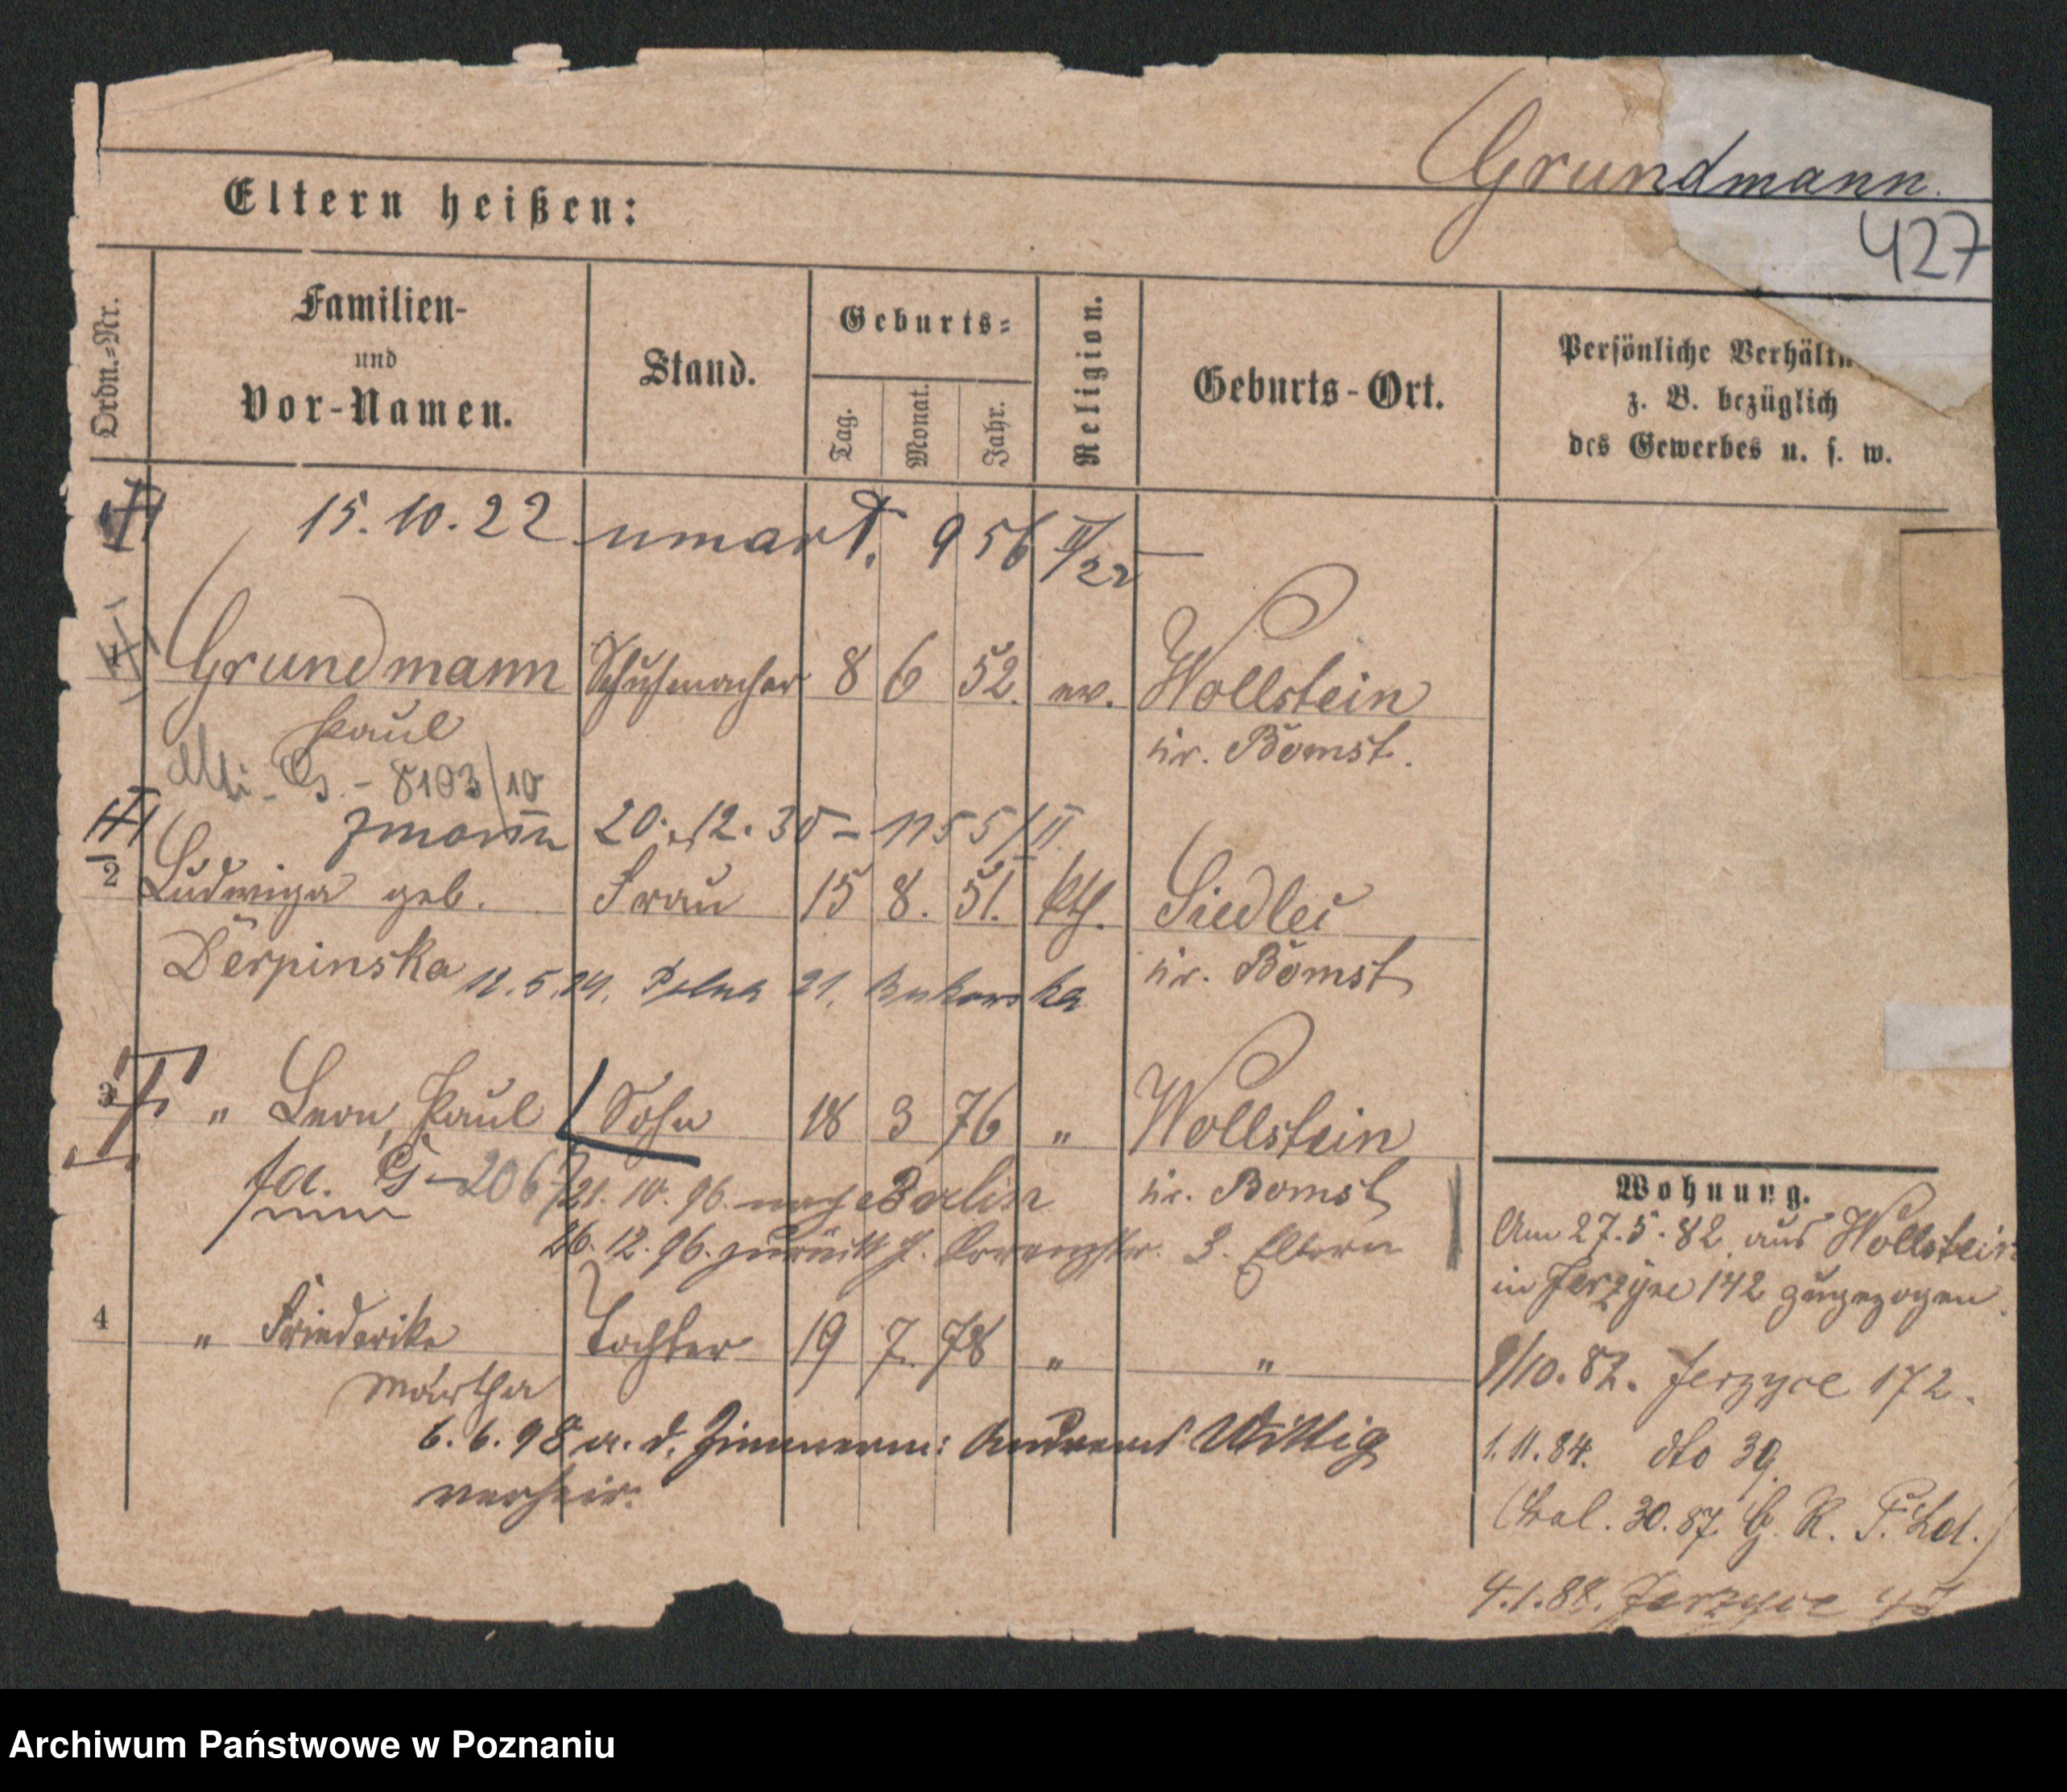 Grundmann.
427
Eltern heißen:
Ordn.-Nr.
Familien-
und
Vor-Namen.
Stand.
Geburts-
Tag.
Monat.
Jahr.
Religion.
Geburts-Ort.
Persönliche Verhältn
z. B. bezüglich
des Gewerbes u. s. w.
15.10.22 umarł. 956 II/22
1 Grundmann Schuhmacher 8 6 52. ev. Wollstein
Paul Kr. Bomst.
8103/10
zmarła 20.12.35 - 1155/II
2 Ludwiga geb. Frau 15 8. 51. kth. Siedlec
Derpinska Kr. Bomst
12.5.24. Polna 21. Bukowska
3 " Leon, Paul Sohn 18 3 76 " Wollstein
21.10.96. nach Berlin Kr. Bomst
26.12.96. zurück 3. Eltern
4 " Friederike Tochter 19 7. 78 " "
Martha
6.6.98 m. d. Zimmerm: Andreas Wittig
verheir:
Wohnung.
Am 27.5.82 aus Wollstein
in Jerzyce 142 zugezogen.
1/10.82. Jerzyce 172.
1.11.84. dto 39.
30.87. G. K. F.
4.1.88. Jerzyce
Archiwum Państwowe w Poznaniu